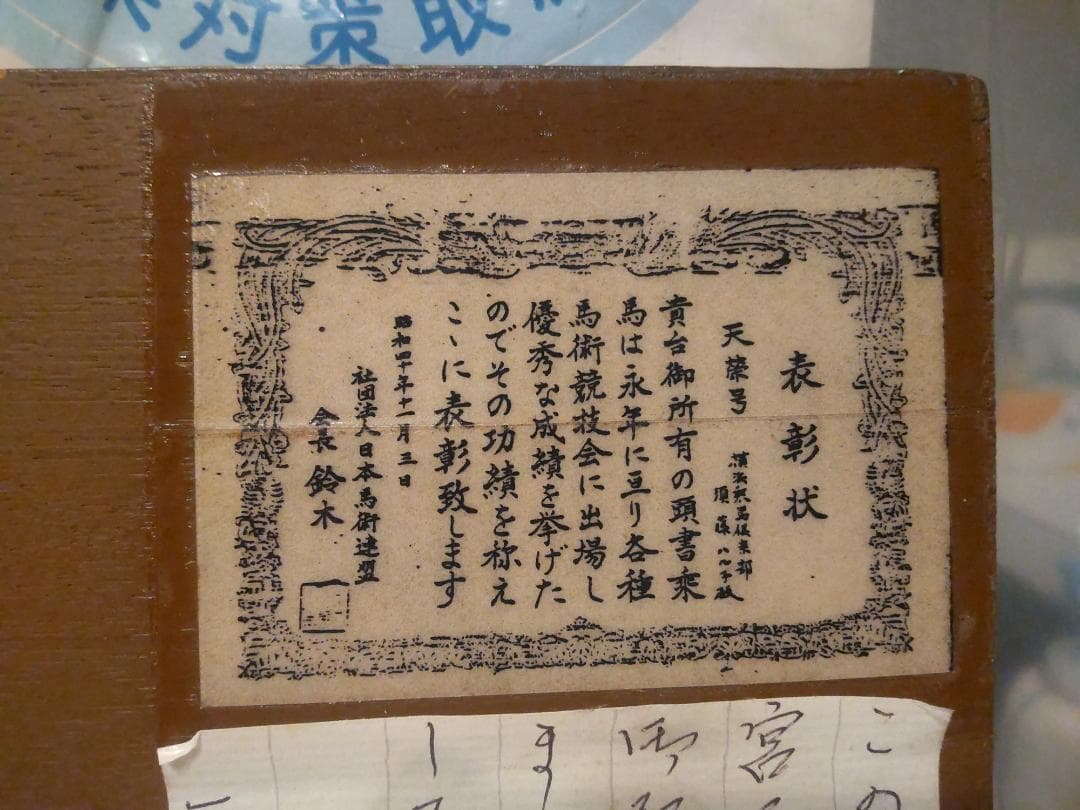 対策取
表彰状
天榮号
横浜乗馬倶楽部
須藤ハルチ殿
貴台御所有の頭書乘
馬は永年に亘り各種
馬術競技会に出場し
優秀な成績を挙げた
のでその功績を称え
こゝに表彰致します
昭和四十年十一月三日
社団法人日本馬術連盟
会長 鈴木
この
宮
御
ま
し